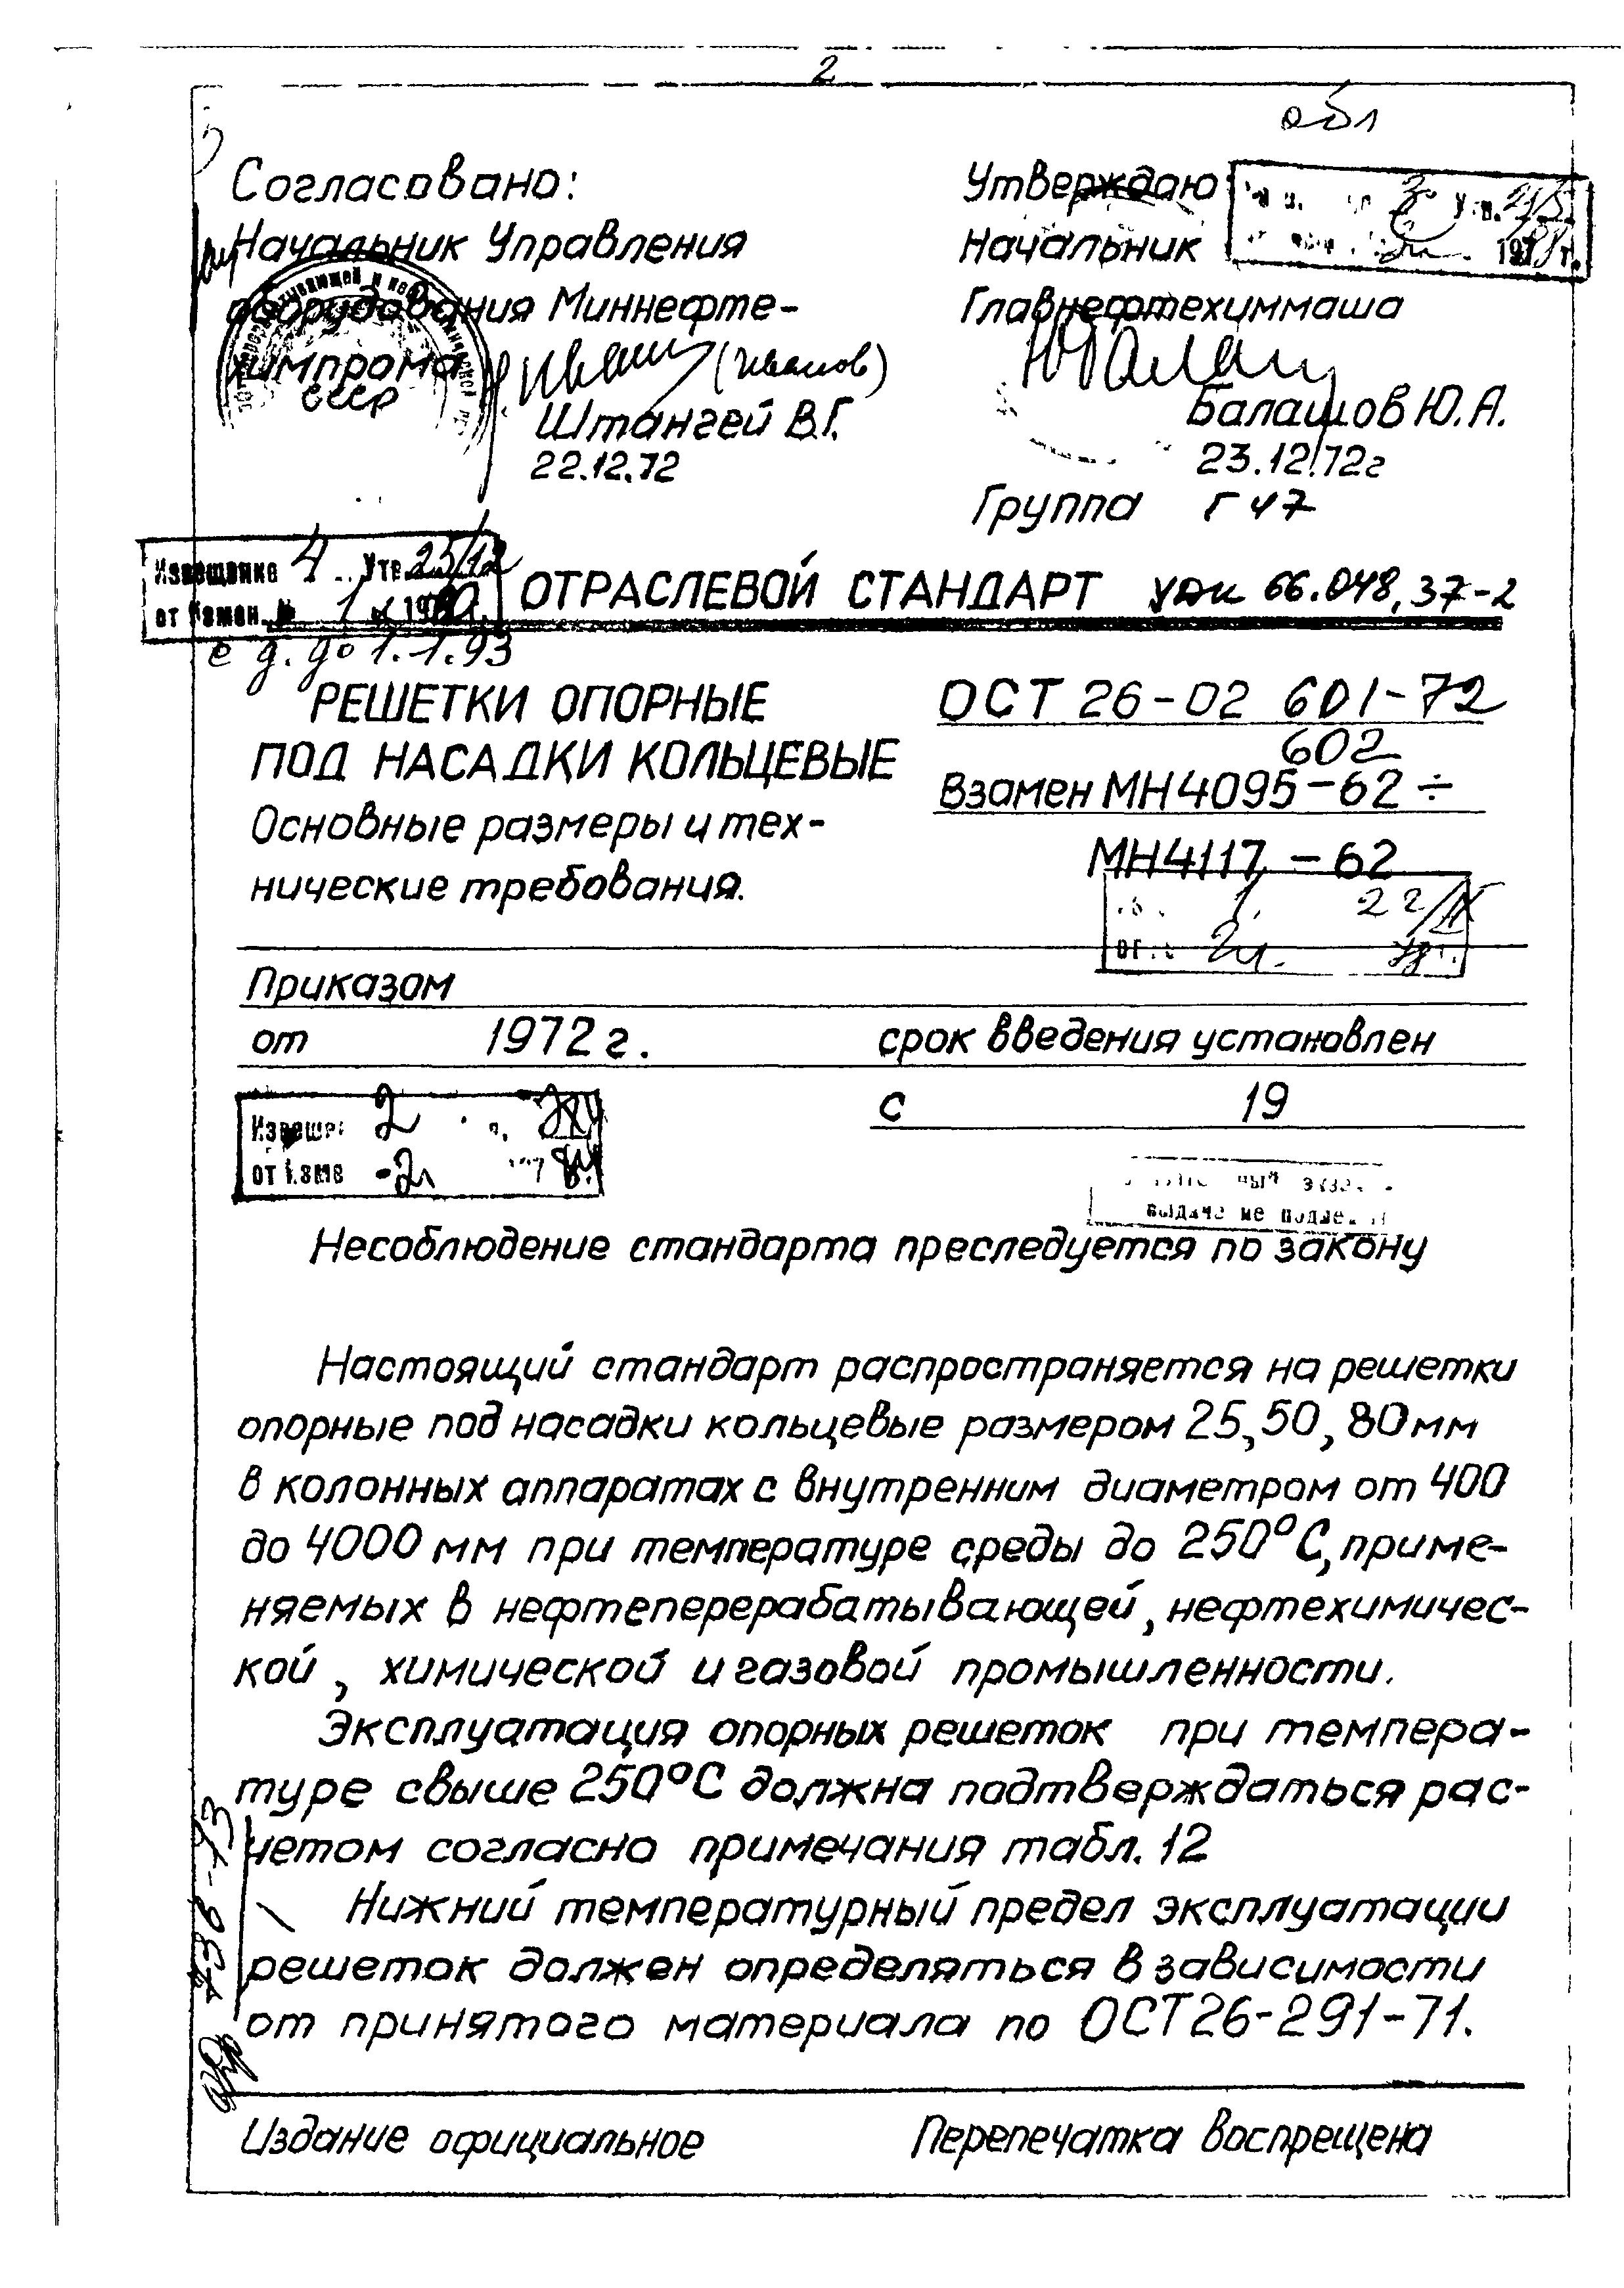 2
обл
Согласовано:
Начальник Управления
оборудования Миннефте-
химпрома
СССР
(Иванов)
Штангей В.Г.
22.12.72
Утверждаю
Начальник
Главнефтехиммаша
Балашов Ю.А.
23.12.72г
Группа Г47
Извещение 4 Утв. 25/12
от Измен. № 1
с д. до 1.1.93
ОТРАСЛЕВОЙ СТАНДАРТ УДК 66.048,37-2
РЕШЕТКИ ОПОРНЫЕ
ПОД НАСАДКИ КОЛЬЦЕВЫЕ
Основные размеры и тех-
нические требования.
ОСТ 26-02 601-72
602
Взамен МН4095-62 ÷
МН4117-62
Приказом
от 1972 г. срок введения установлен
с 19
Несоблюдение стандарта преследуется по закону
Настоящий стандарт распространяется на решетки
опорные под насадки кольцевые размером 25, 50, 80 мм
в колонных аппаратах с внутренним диаметром от 400
до 4000 мм при температуре среды до 250°С, приме-
няемых в нефтеперерабатывающей, нефтехимичес-
кой, химической и газовой промышленности.
Эксплуатация опорных решеток при темпера-
туре свыше 250°С должна подтверждаться рас-
четом согласно примечания табл. 12
Нижний температурный предел эксплуатации
решеток должен определяться в зависимости
от принятого материала по ОСТ26-291-71.
Издание официальное Перепечатка воспрещена